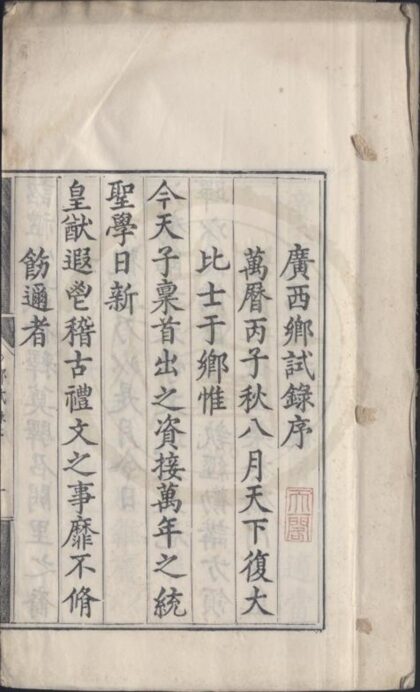 廣西鄉試錄序
萬曆丙子秋八月天下復大
比士于鄉惟
今天子稟首出之資接萬年之統
聖學日新
皇猷遐鬯稽古禮文之事靡不脩
飭邇者
天一閣